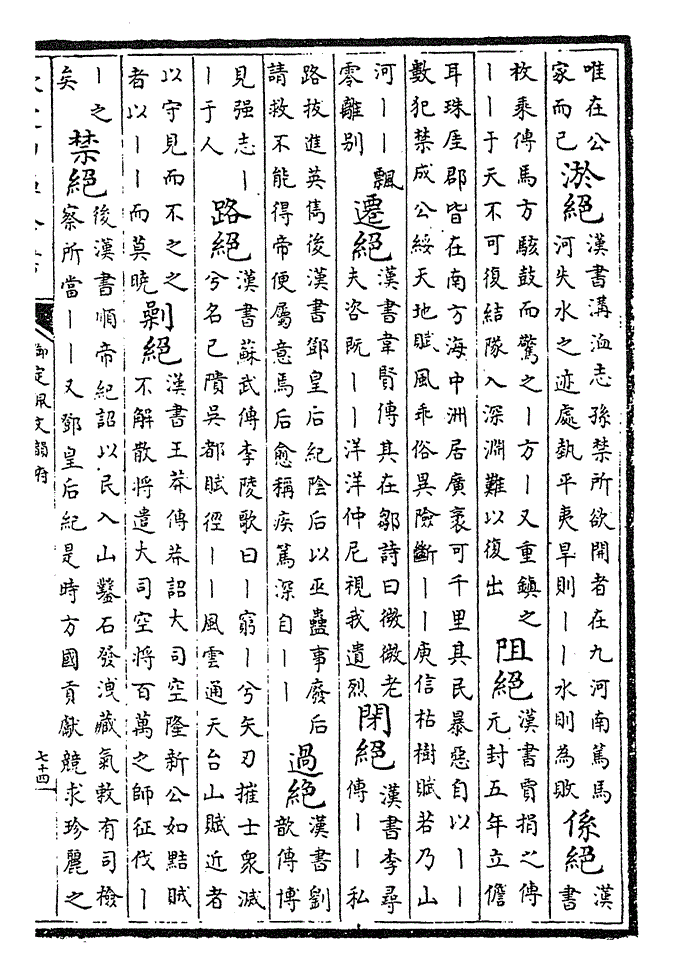 唯在公
家而已
淤絕
漢書溝洫志孫禁所欲開者在九河南篤馬
河失水之迹處埶平夷旱則丨丨水則為敗
係絕
漢
書
枚乘傳馬方駭鼓而驚之丨方丨又重鎮之
丨丨于天不可復結隊入深淵難以復出
阻絕
漢書賈捐之傳
元封五年立儋
耳珠厓郡皆在南方海中洲居廣袤可千里其民暴惡自以丨丨
數犯禁成公綏天地賦風乖俗異險斷丨丨庾信枯樹賦若乃山
河丨丨飄
零離别
遷絕
漢書韋賢傳其在鄒詩曰微微老
夫咨旣丨丨洋洋仲尼視我遺烈
閉絕
漢書李尋
傳丨丨私
路拔進英雋後漢書鄧皇后紀陰后以巫蠱事廢后
請救不能得帝便屬意焉后愈稱疾篤深自丨丨
過絕
漢書劉
歆傳博
見强志丨
丨于人
路絕
漢書蘇武傳李陵歌曰丨窮丨兮矢刃摧士衆滅
兮名已隤吳都賦徑丨丨風雲通天台山賦近者
以守見而不之之
者以丨丨而莫曉
剿絕
漢書王莽傳莽詔大司空隆新公如黠賊
不解散將遣大司空將百萬之師征伐丨
丨之
矣
禁絕
後漢書順帝紀詔以民入山鑿石發洩藏氣敕有司檢
察所當丨丨又鄧皇后紀是時方國貢獻競求珍麗之
御定佩文韻府
七十四